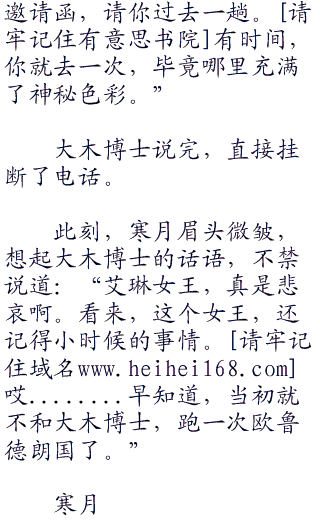 邀请函，请你过去一趟。[请
牢记住有意思书院]有时间，
你就去一次，毕竟哪里充满
了神秘色彩。”
大木博士说完，直接挂
断了电话。
此刻，寒月眉头微皱，
想起大木博士的话语，不禁
说道：“艾琳女王，真是悲
哀啊。看来，这个女王，还
记得小时候的事情。[请牢记
住域名www.heihei168.com]
哎........早知道，当初就
不和大木博士，跑一次欧鲁
德朗国了。”
寒月